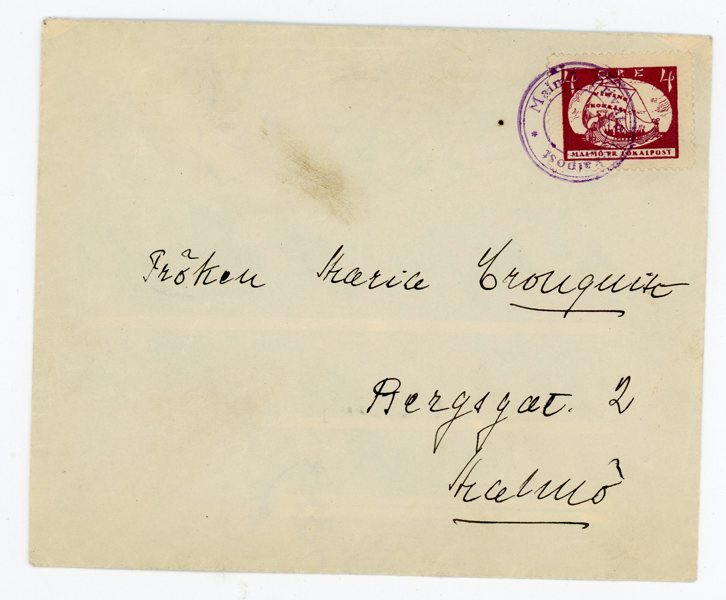 4 ÖRE 4
MALMÖ PR. LOKALPOST
Malmö * Lokalpost *
Fröken Maria Cronquist
Bergsgat. 2
Malmö